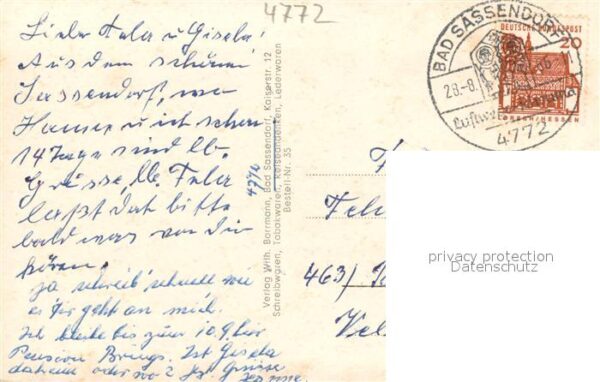 4772
Aus dem schönen
Sassendorf, wo
u ich schon
14 Tage sind lb.
Grüsse, lb.
laßt doch bitte
bald was von Dir
hören.
Ja schreib' schnell wie
es Dir geht an mich.
Ich bleibe bis zum 10.9. hier
Pension Brings. Ist Gisela
daheim oder wo?
4770
Verlag Wilh. Borrmann, Bad Sassendorf, Kaiserstr. 12
Schreibwaren, Tabakwaren, Reiseandenken, Lederwaren
Bestell-Nr. 35
BAD SASSENDORF
28.-8.
4772
DEUTSCHE BUNDESPOST
20
LORSCH/HESSEN
463/
privacy protection
Datenschutz